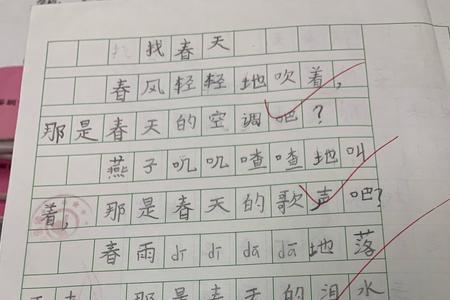 找春天
春风轻轻地吹着，
那是春天的空调吧？
燕子叽叽喳喳地叫
着，那是春天的歌声吧？
春雨dī dī dā dā地落
那是春天的泪水